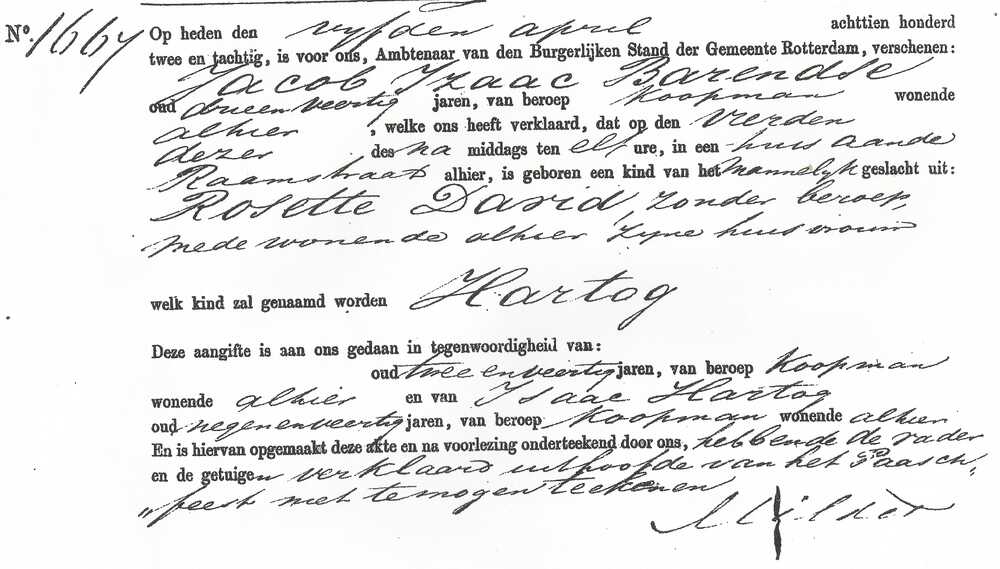 No. 1667 Op heden den vijfden april achttien honderd
twee en tachtig, is voor ons, Ambtenaar van den Burgerlijken Stand der Gemeente Rotterdam, verschenen:
Jacob Izaac Barendse
oud drieenveertig jaren, van beroep Koopman wonende
alhier , welke ons heeft verklaard, dat op den vierden
dezer des na middags ten elf ure, in een huis aande
Raamstraat alhier, is geboren een kind van het mannelijk geslacht uit:
Rosette David, zonder beroep,
mede wonende alhier zijne huisvrouw
welk kind zal genaamd worden Hartog
Deze aangifte is aan ons gedaan in tegenwoordigheid van:
oud tweeenveertig jaren, van beroep Koopman
wonende alhier en van Isaac Hartog
oud negenenveertig jaren, van beroep Koopman wonende alhier
En is hiervan opgemaakt deze akte en na voorlezing onderteekend door ons, hebbende de vader
en de getuigen verklaard uithoofde van het Paasch„
„feest niet te mogen teekenen